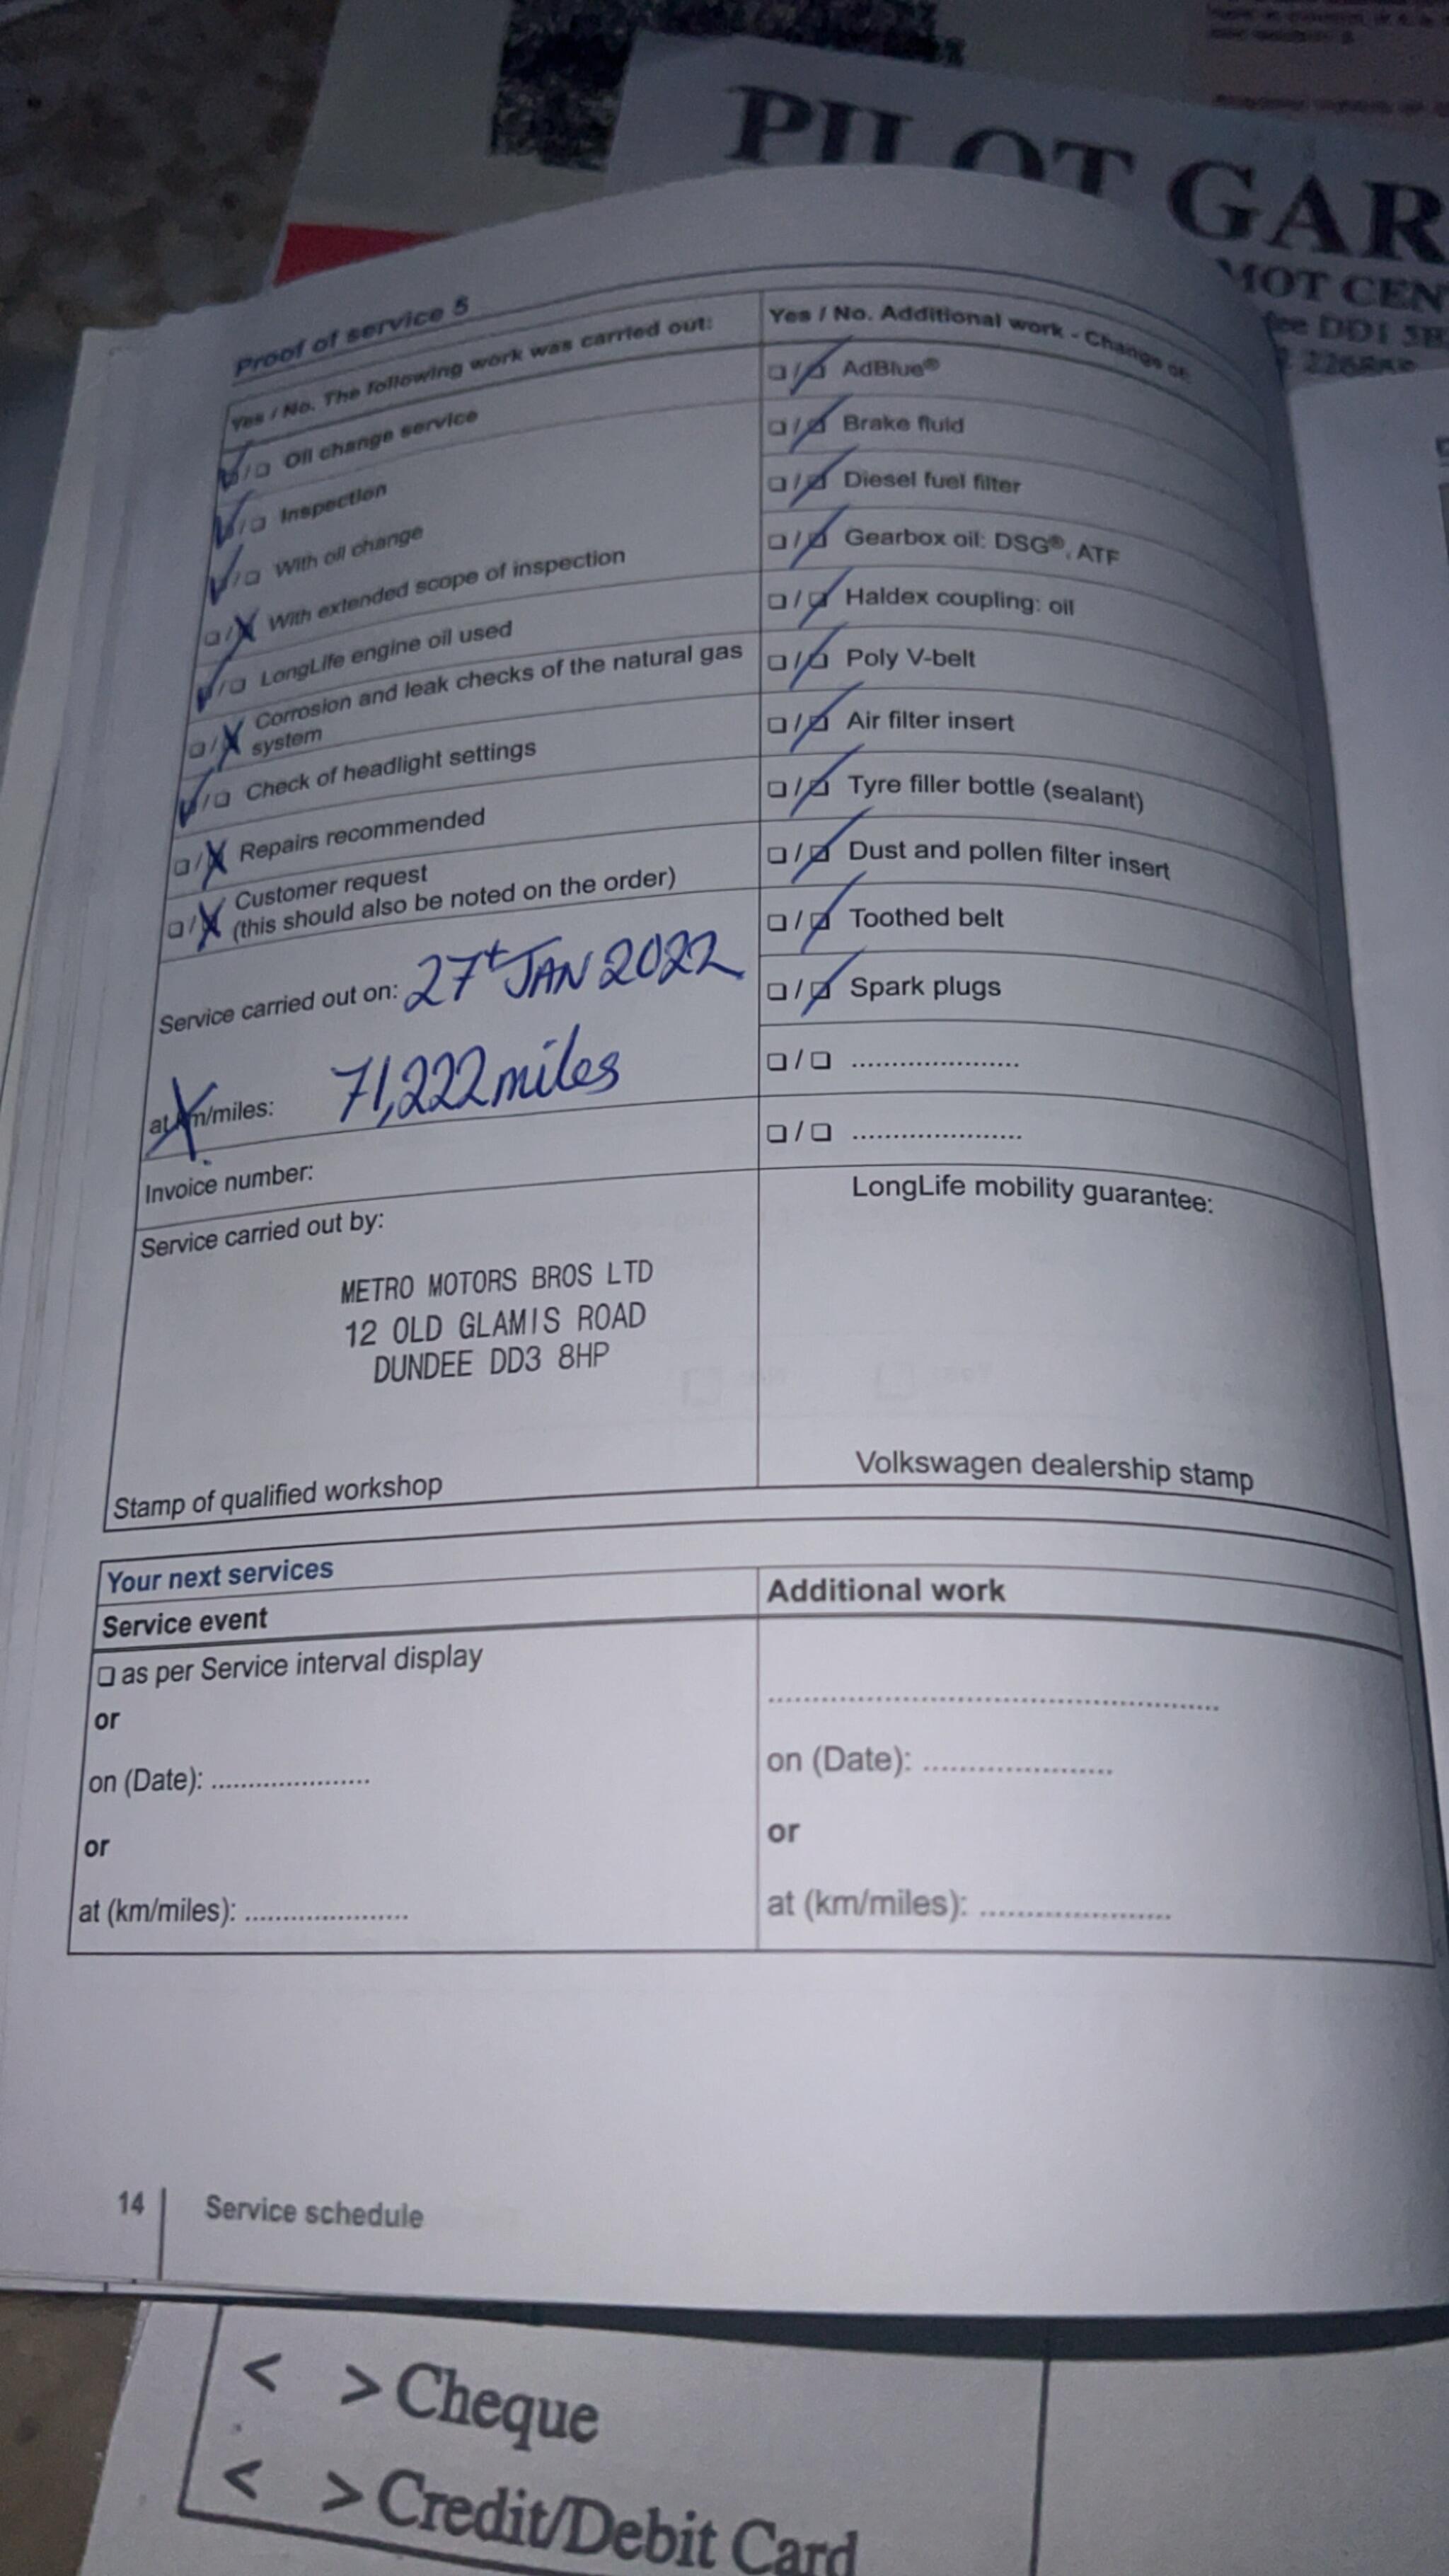 PILOT GAR
MOT CEN
DD1
Proof of service 5
Yes / No. The following work was carried out:
☑/❑ Oil change service
☑/❑ Inspection
☑/❑ With oil change
❑/☒ With extended scope of inspection
☑/❑ LongLife engine oil used
❑/☒ Corrosion and leak checks of the natural gas
system
☑/❑ Check of headlight settings
❑/☒ Repairs recommended
❑/☒ Customer request
(this should also be noted on the order)
Service carried out on: 27t JAN 2022
at km/miles: 71,222 miles
Invoice number:
Service carried out by:
METRO MOTORS BROS LTD
12 OLD GLAMIS ROAD
DUNDEE DD3 8HP
Stamp of qualified workshop
Yes / No. Additional work - Change of:
❑/☑ AdBlue®
❑/☑ Brake fluid
❑/☑ Diesel fuel filter
❑/☑ Gearbox oil: DSG®, ATF
❑/☑ Haldex coupling: oil
❑/☑ Poly V-belt
❑/☑ Air filter insert
❑/☑ Tyre filler bottle (sealant)
❑/☑ Dust and pollen filter insert
❑/☑ Toothed belt
❑/☑ Spark plugs
❑/❑ ......................
❑/❑ ......................
LongLife mobility guarantee:
Volkswagen dealership stamp
Your next services
Service event
❑ as per Service interval display
or
on (Date): .....................
or
at (km/miles): ......................
Additional work
............................................................
on (Date): .........................
or
at (km/miles): .........................
14 Service schedule
< > Cheque
< > Credit/Debit Card